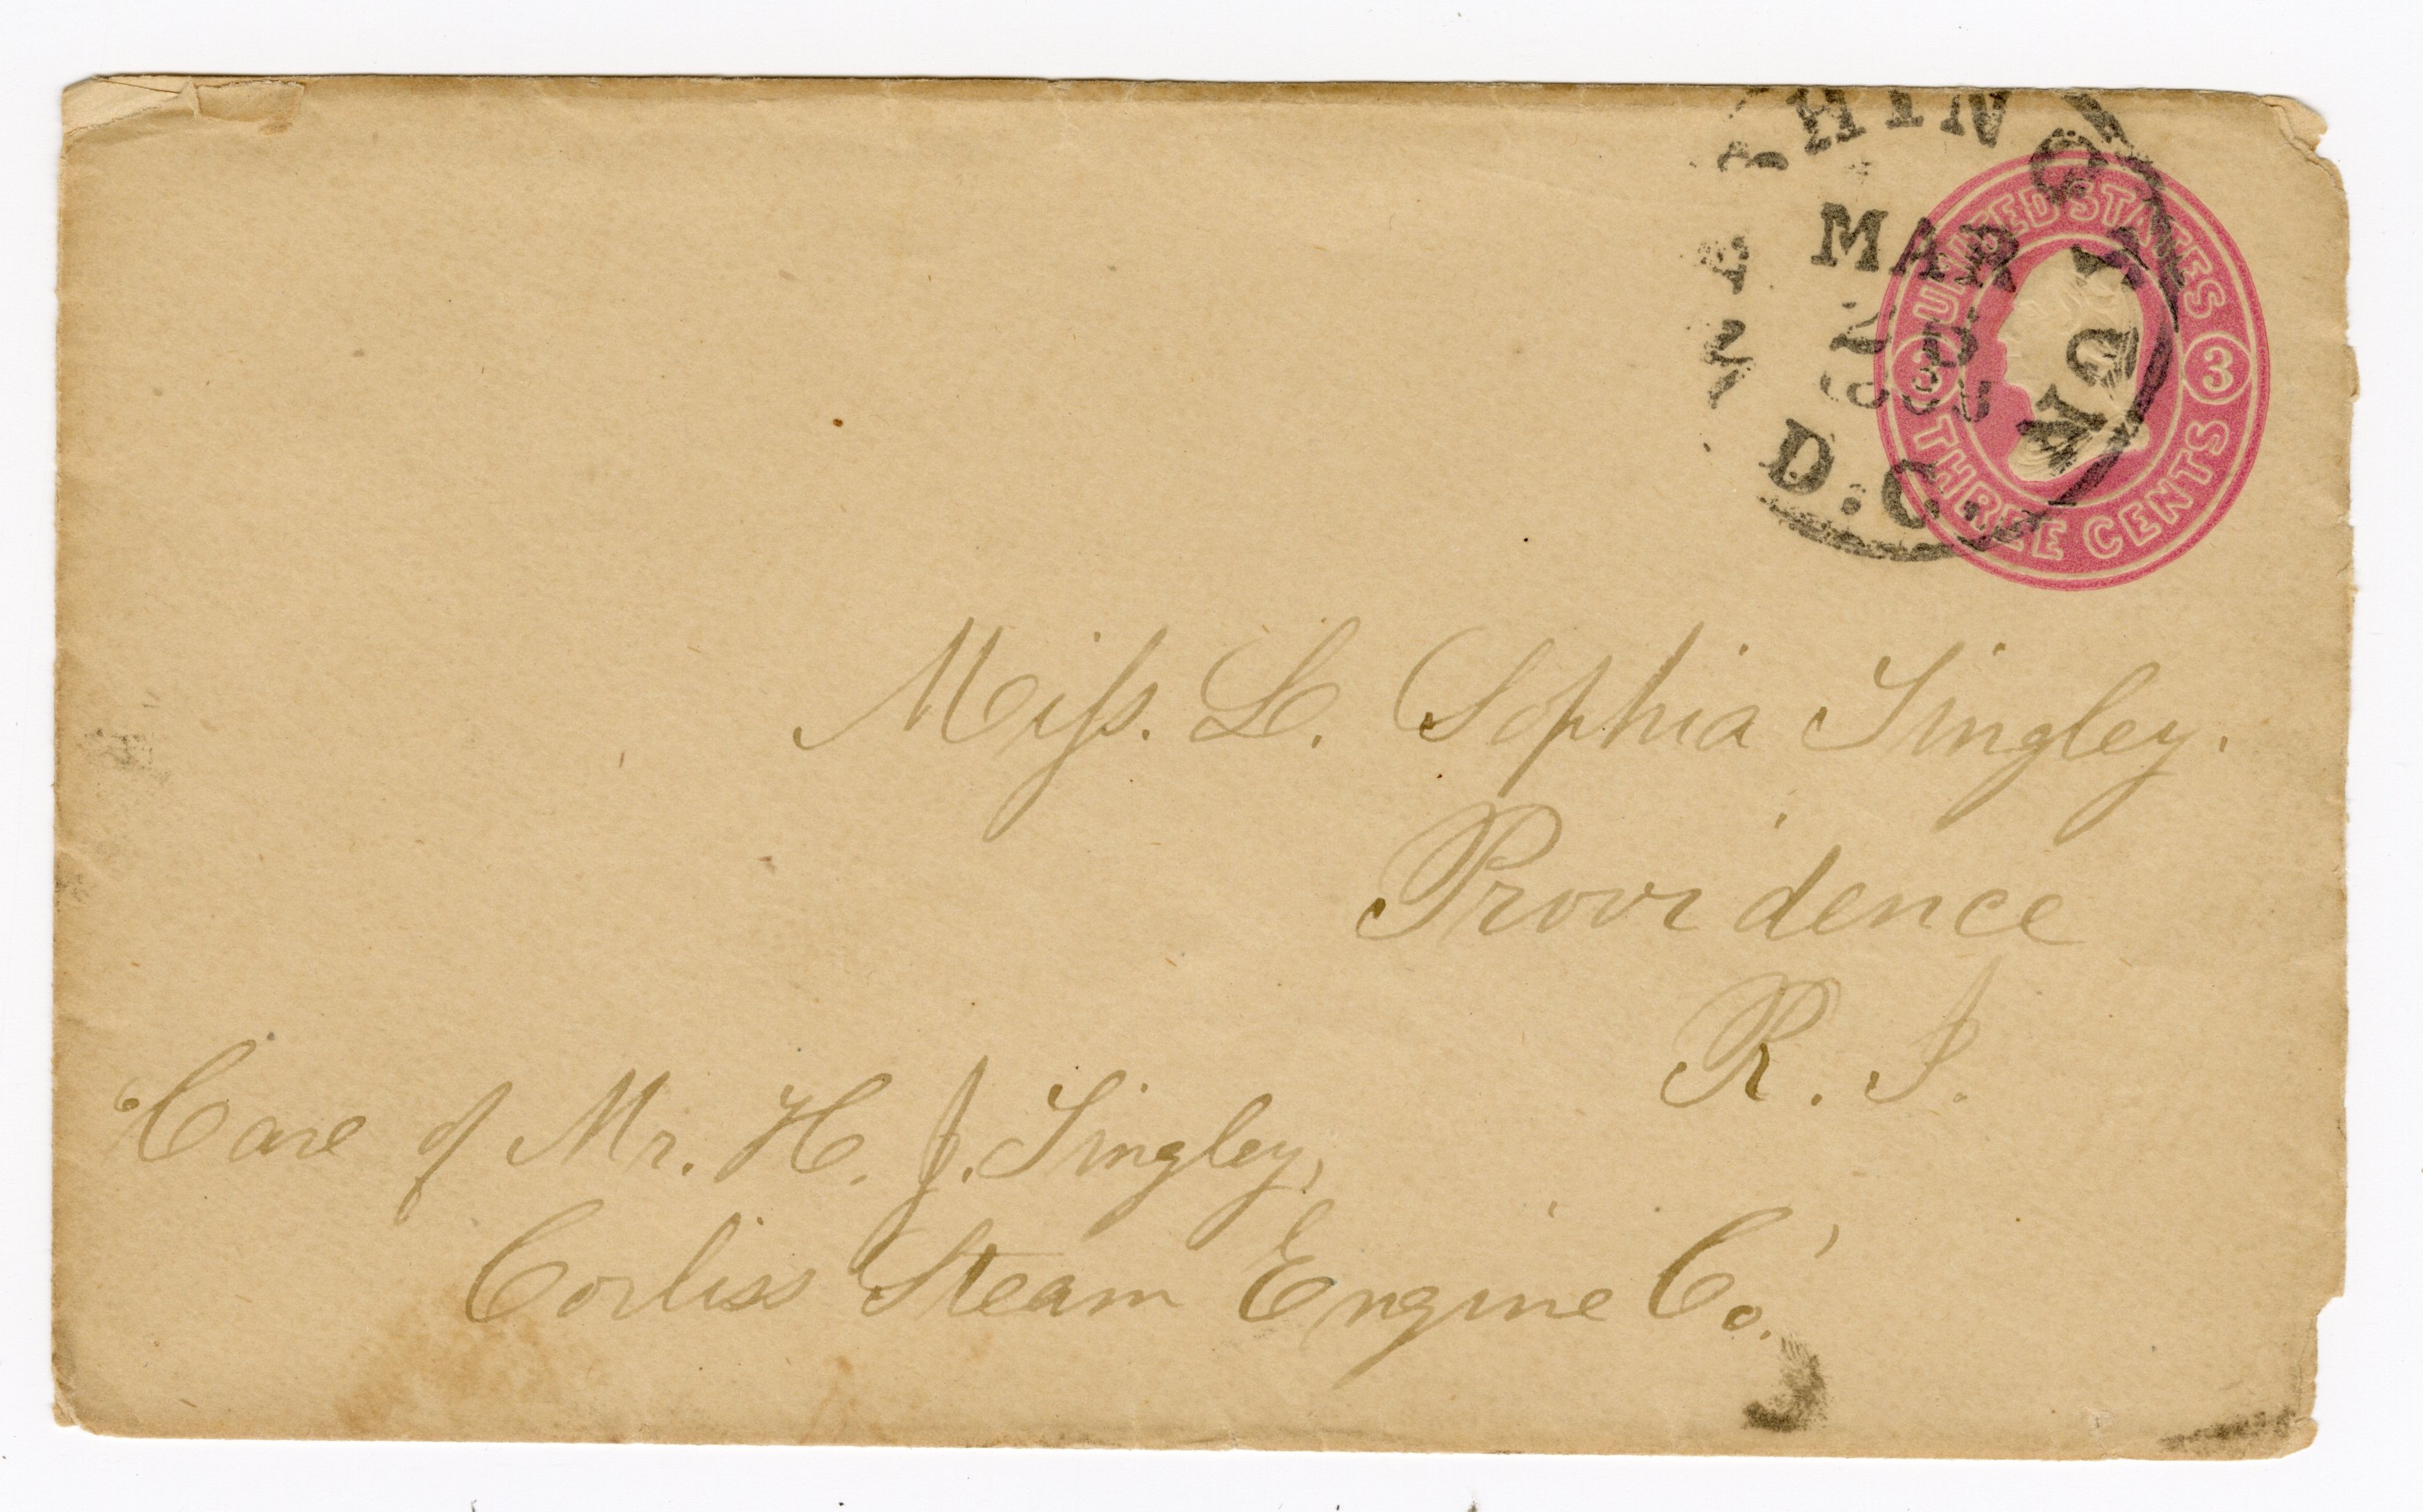 WASHINGTON
MAR
D.C.
UNITED STATES
3 3
THREE CENTS
Miss. L. Sophia Tingley.
Providence
R. I.
Care of Mr. H. J. Tingley,
Corliss Steam Engine Co.